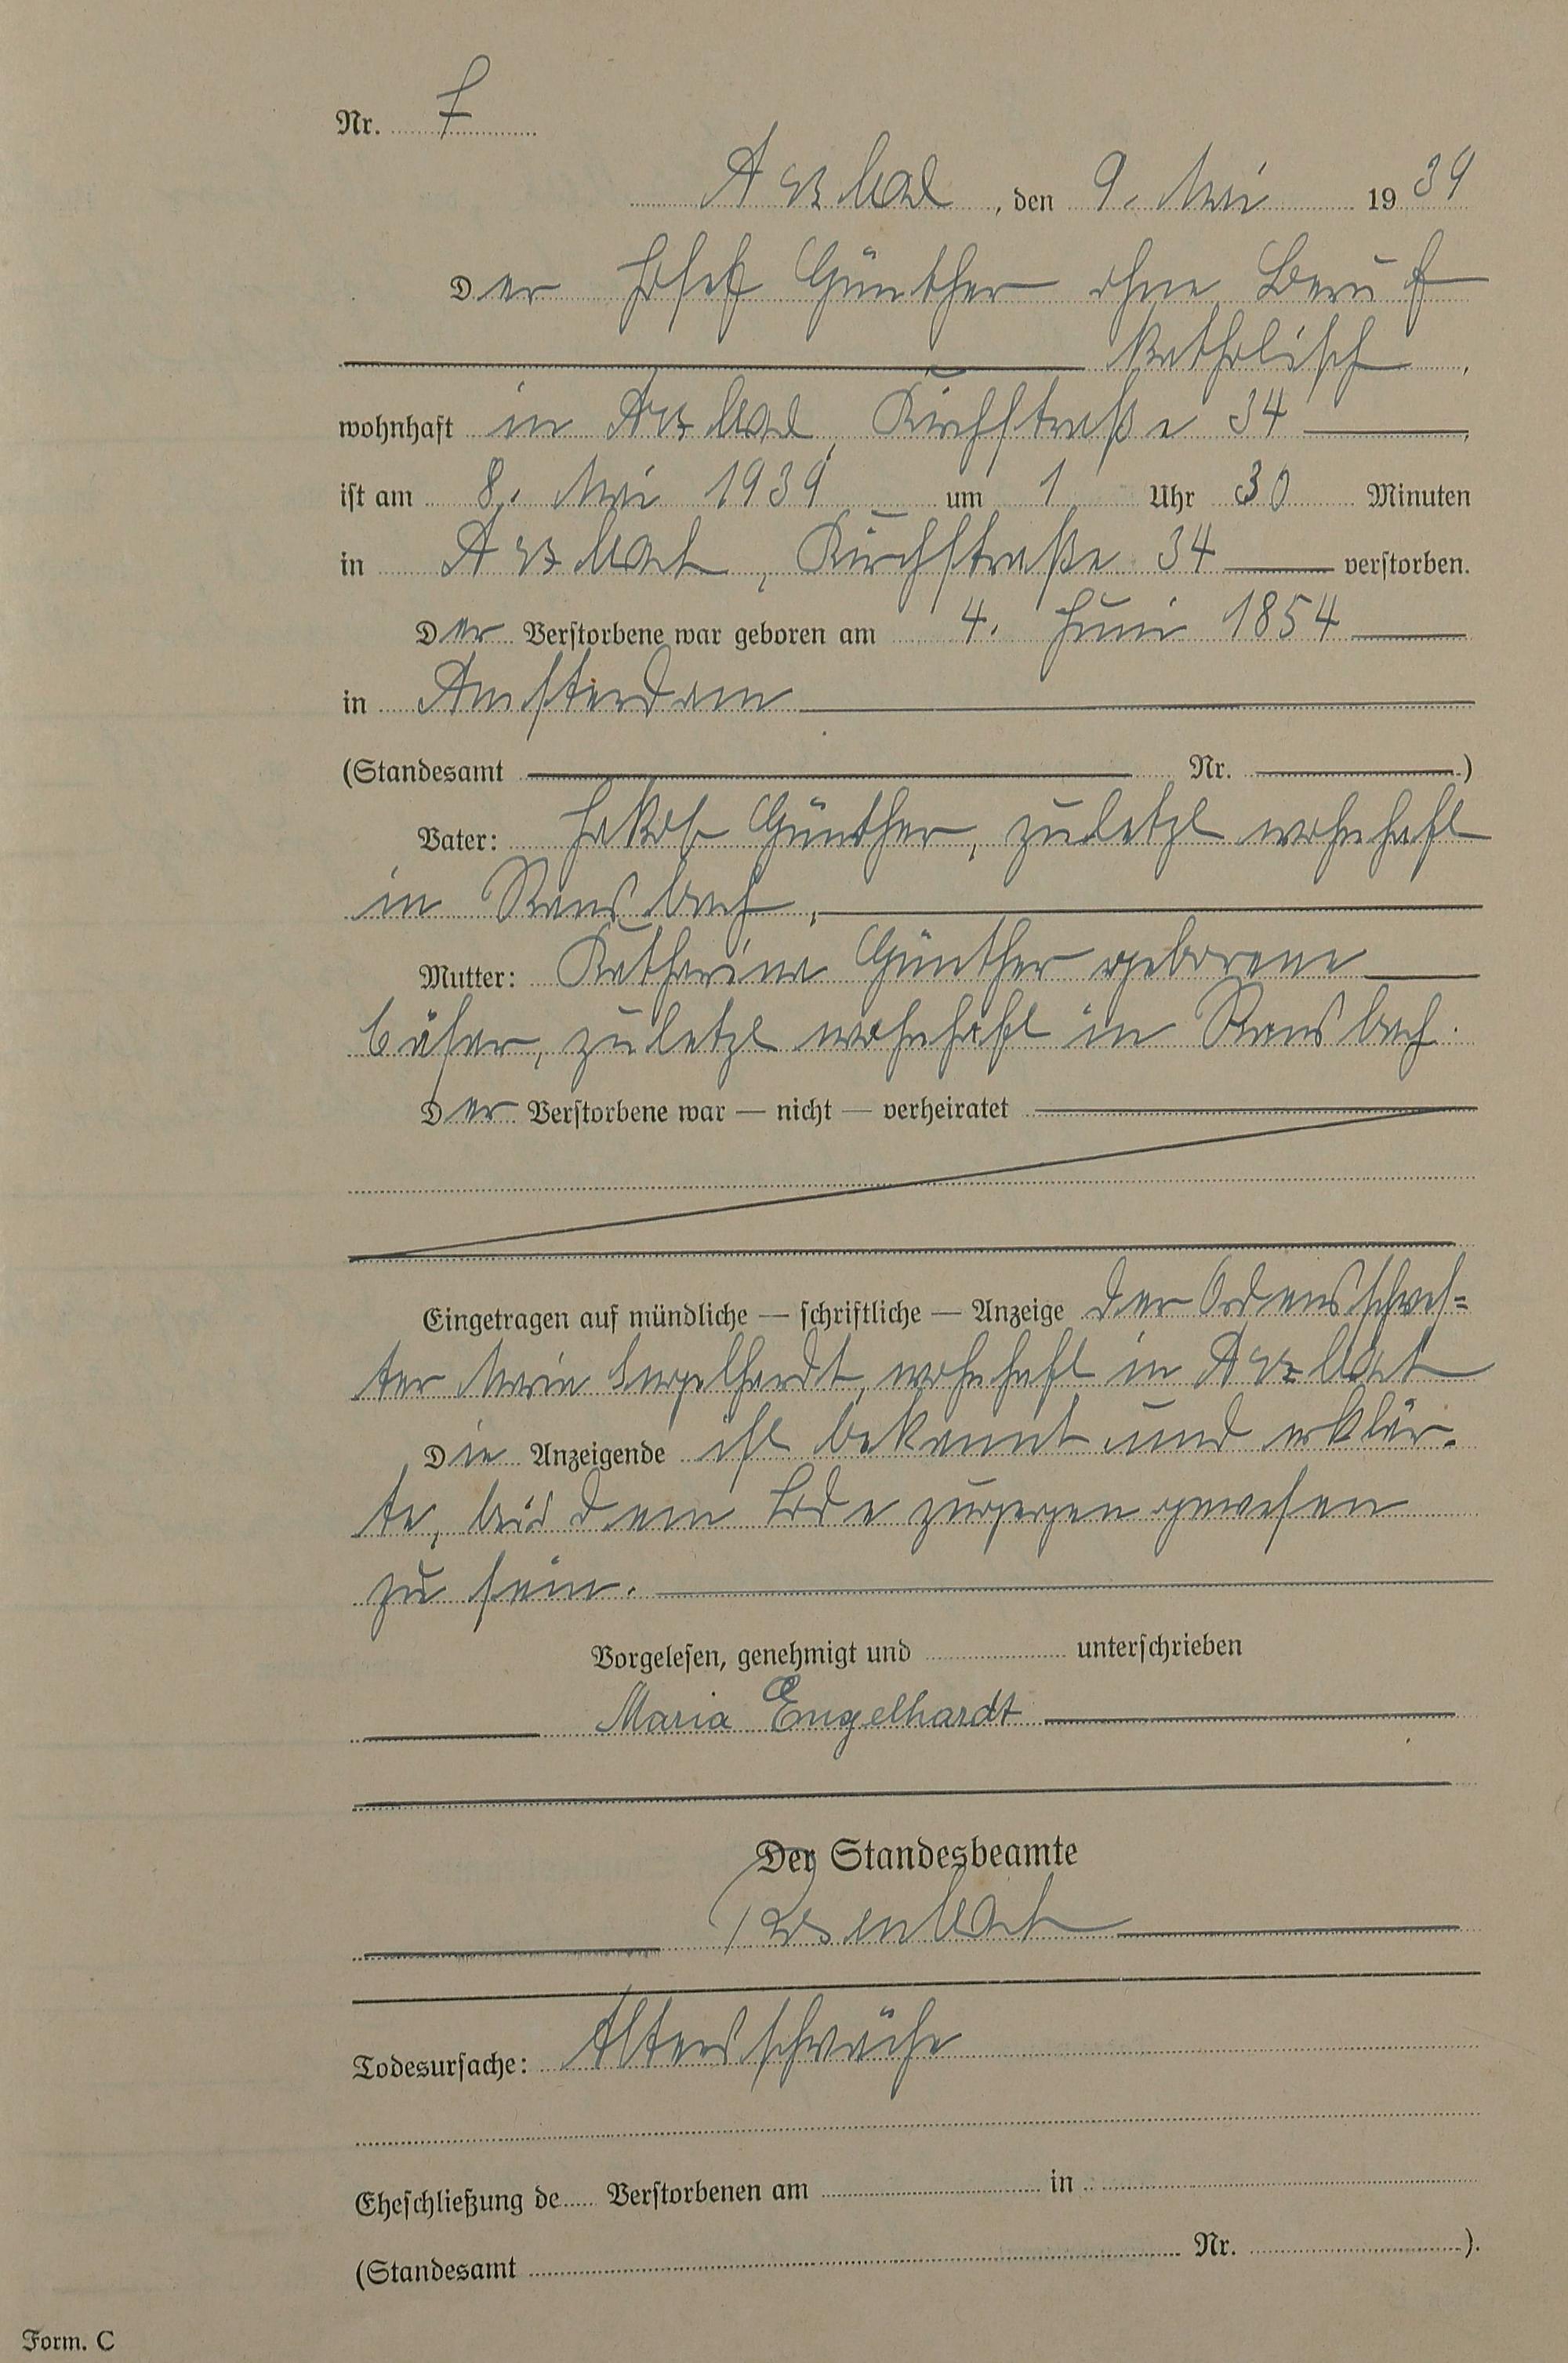 Nr. 7
Arzbach, den 9. Mai 1939
Der Josef Günther ohne Beruf
katholisch,
wohnhaft in Arzbach, Kirchstraße 34,
ist am 8. Mai 1939 um 1 Uhr 30 Minuten
in Arzbach, Kirchstraße 34 verstorben.
Der Verstorbene war geboren am 4. Juni 1854
in Amsterdam
(Standesamt Nr. )
Vater: Jakob Günther, zuletzt wohnhaft
in Ransbach,
Mutter: Katharina Günther geborene
zuletzt wohnhaft in Ransbach.
Der Verstorbene war — nicht — verheiratet
Eingetragen auf mündliche — schriftliche — Anzeige der Ordensschwes=
ter Maria Engelhardt, wohnhaft in Arzbach
Die Anzeigende ist bekannt und erklär-
te, bei dem Tode zugegen gewesen
zu sein.
Vorgelesen, genehmigt und unterschrieben
Maria Engelhardt
Der Standesbeamte
Todesursache: Altersschwäche
Eheschließung de Verstorbenen am in
(Standesamt Nr. ).
Form. C